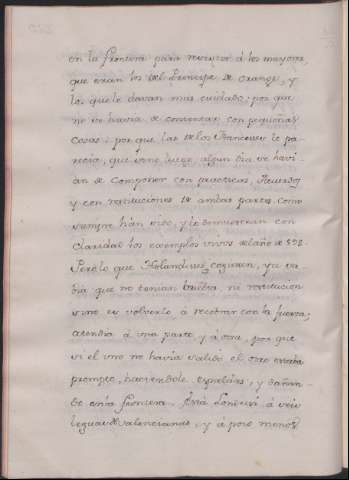 en la frontera para resistir á los mayores,
que eran los del Principe de Orange, y
los que le davan mas cuidado; por que
no se havia de contentar con pequeñas
cosas; por que las de los Franceses le pa-
recia, que tarde luego, algun dia se havi-
an de componer con practicas, Acuerdos
y con restituciones de ambas partes como
siempre hán sido, y le demuestran con
claridad los exemplos vivos del año de 598.
Pero lo que Holandeses cogiesen, ya sa-
bia que no tenian salida, ni restitucion
sino es volverlo á recobrar con la fuerza;
atendia á una parte y á otra, por que
si el uno no havia salido el otro estaba
prompto, haciendole espaldas, y
de en la frontera. Está Landresi á seis
leguas de Valencianas, y á poco menos